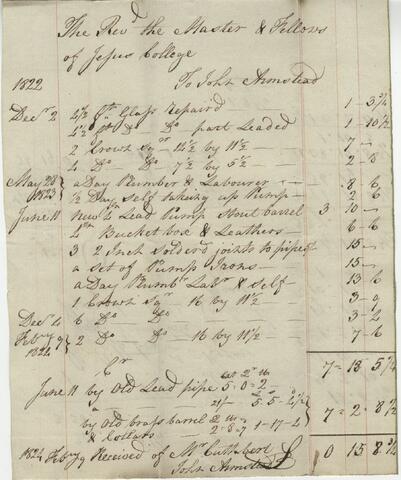 The Revd the Master & Fellows
of Jesus College
1822 To John Armstead
Decr 2 4½ ft Glass Repaird — 1 - 3¾
4½ ft Do Do part Leaded 1 - 10½
2 Crown Sqrs 14 by 11½ — 7 —
4 Do Do 7½ by 5½ — 2 - 8
May 28 1823 a Day Plumber & Labourer — 8 - 6
½ Day Self taking up Pump — 2 6
June 11 New Lead Pump Stout barrel 3 10 —
4 In Bucket box & Leathers — 6 - 6
3 2 Inch Solder'd joints to pipe 15 —
a Set of Pump Irons — 15 —
a Day Plumbr Labr & Self — 13 6
1 Crown Sqr 16 by 11½ — 3 - 9
Decr 4 6 Do Do — 3 - 2
Feby 9 1824 2 Do Do 16 by 11½ — 7 - 6
Cr 7 = 18 5¼
June 11 by Old Lead pipe 5 " 0 " 2 —
21/- 5 " 5 - 4½
by Old brass barrel & Collars 2 " 8 " 7 1 - 17 - 4 7 = 2 = 8½
1824 Feby 9 Received of Mr Cuthbert 0 15 8¾
John Armstead